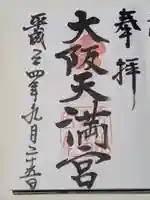 奉拝
大阪天満宮
平成二四年九月二十五日